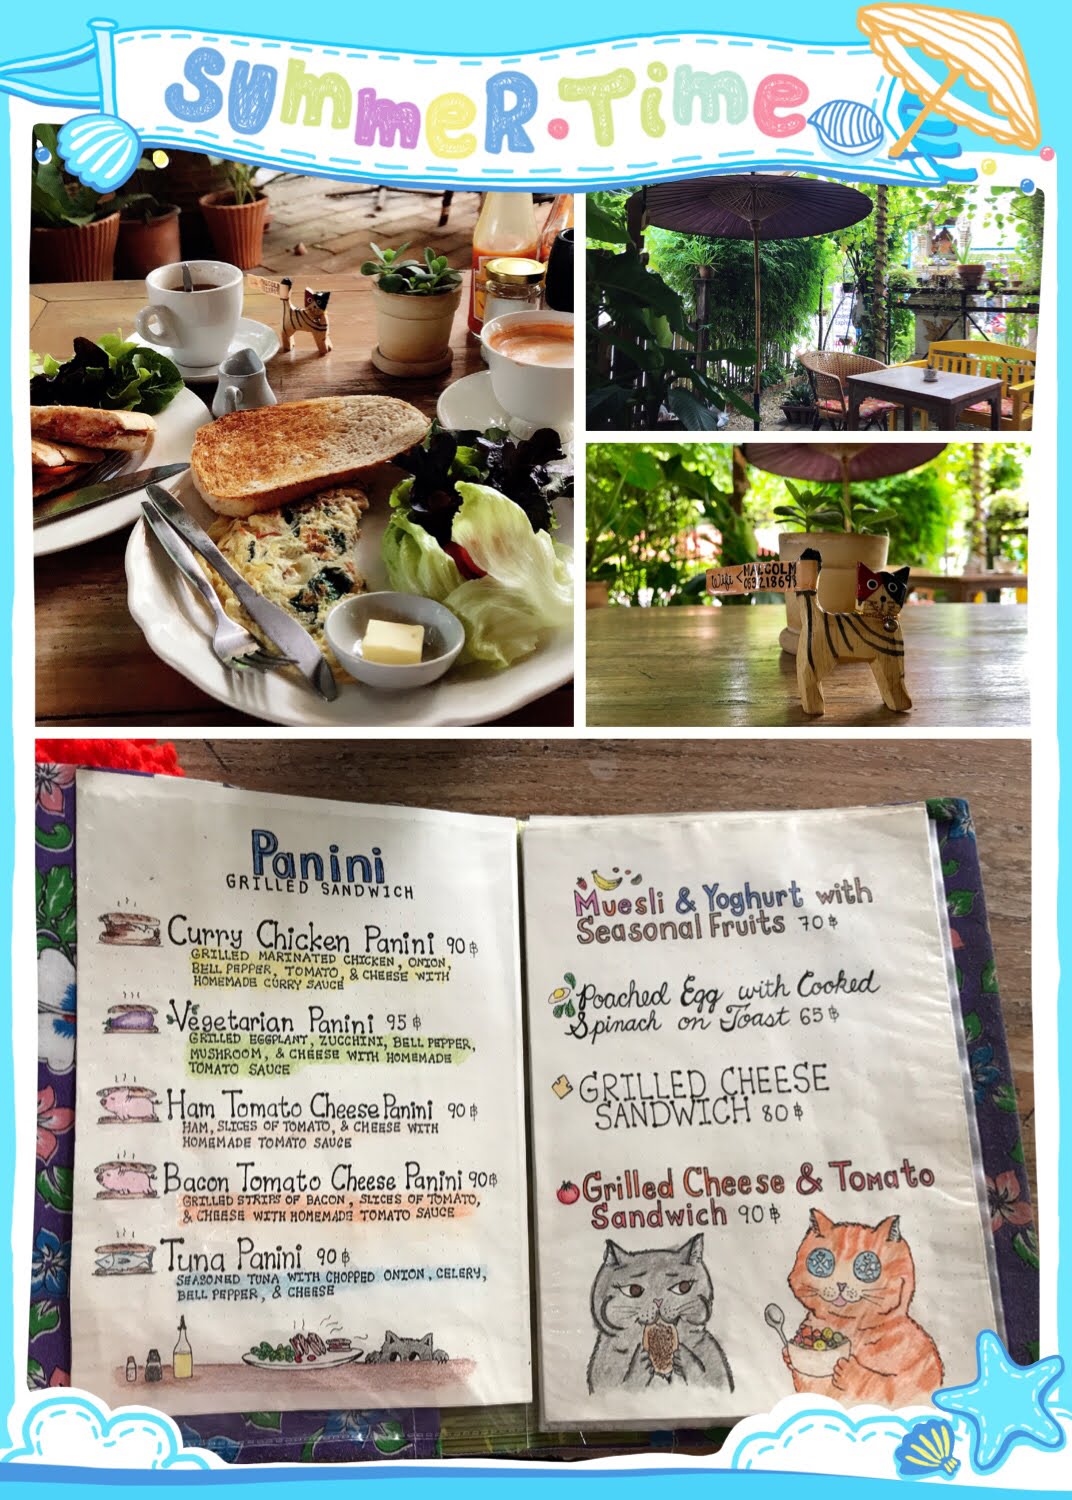 SUMMER·TIME
Wifi < MALCOLM
Panini
GRILLED SANDWICH
Curry Chicken Panini 90฿
GRILLED MARINATED CHICKEN, ONION,
BELL PEPPER, TOMATO, & CHEESE WITH
HOMEMADE CURRY SAUCE
Vegetarian Panini 95฿
GRILLED EGGPLANT, ZUCCHINI, BELL PEPPER,
MUSHROOM, & CHEESE WITH HOMEMADE
TOMATO SAUCE
Ham Tomato Cheese Panini 90฿
HAM, SLICES OF TOMATO, & CHEESE WITH
HOMEMADE TOMATO SAUCE
Bacon Tomato Cheese Panini 90฿
GRILLED STRIPS OF BACON, SLICES OF TOMATO,
& CHEESE WITH HOMEMADE TOMATO SAUCE
Tuna Panini 90฿
SEASONED TUNA WITH CHOPPED ONION, CELERY,
BELL PEPPER, & CHEESE
Muesli & Yoghurt with
Seasonal Fruits 70฿
Poached Egg with Cooked
Spinach on Toast 65฿
GRILLED CHEESE
SANDWICH 80฿
Grilled Cheese & Tomato
Sandwich 90฿